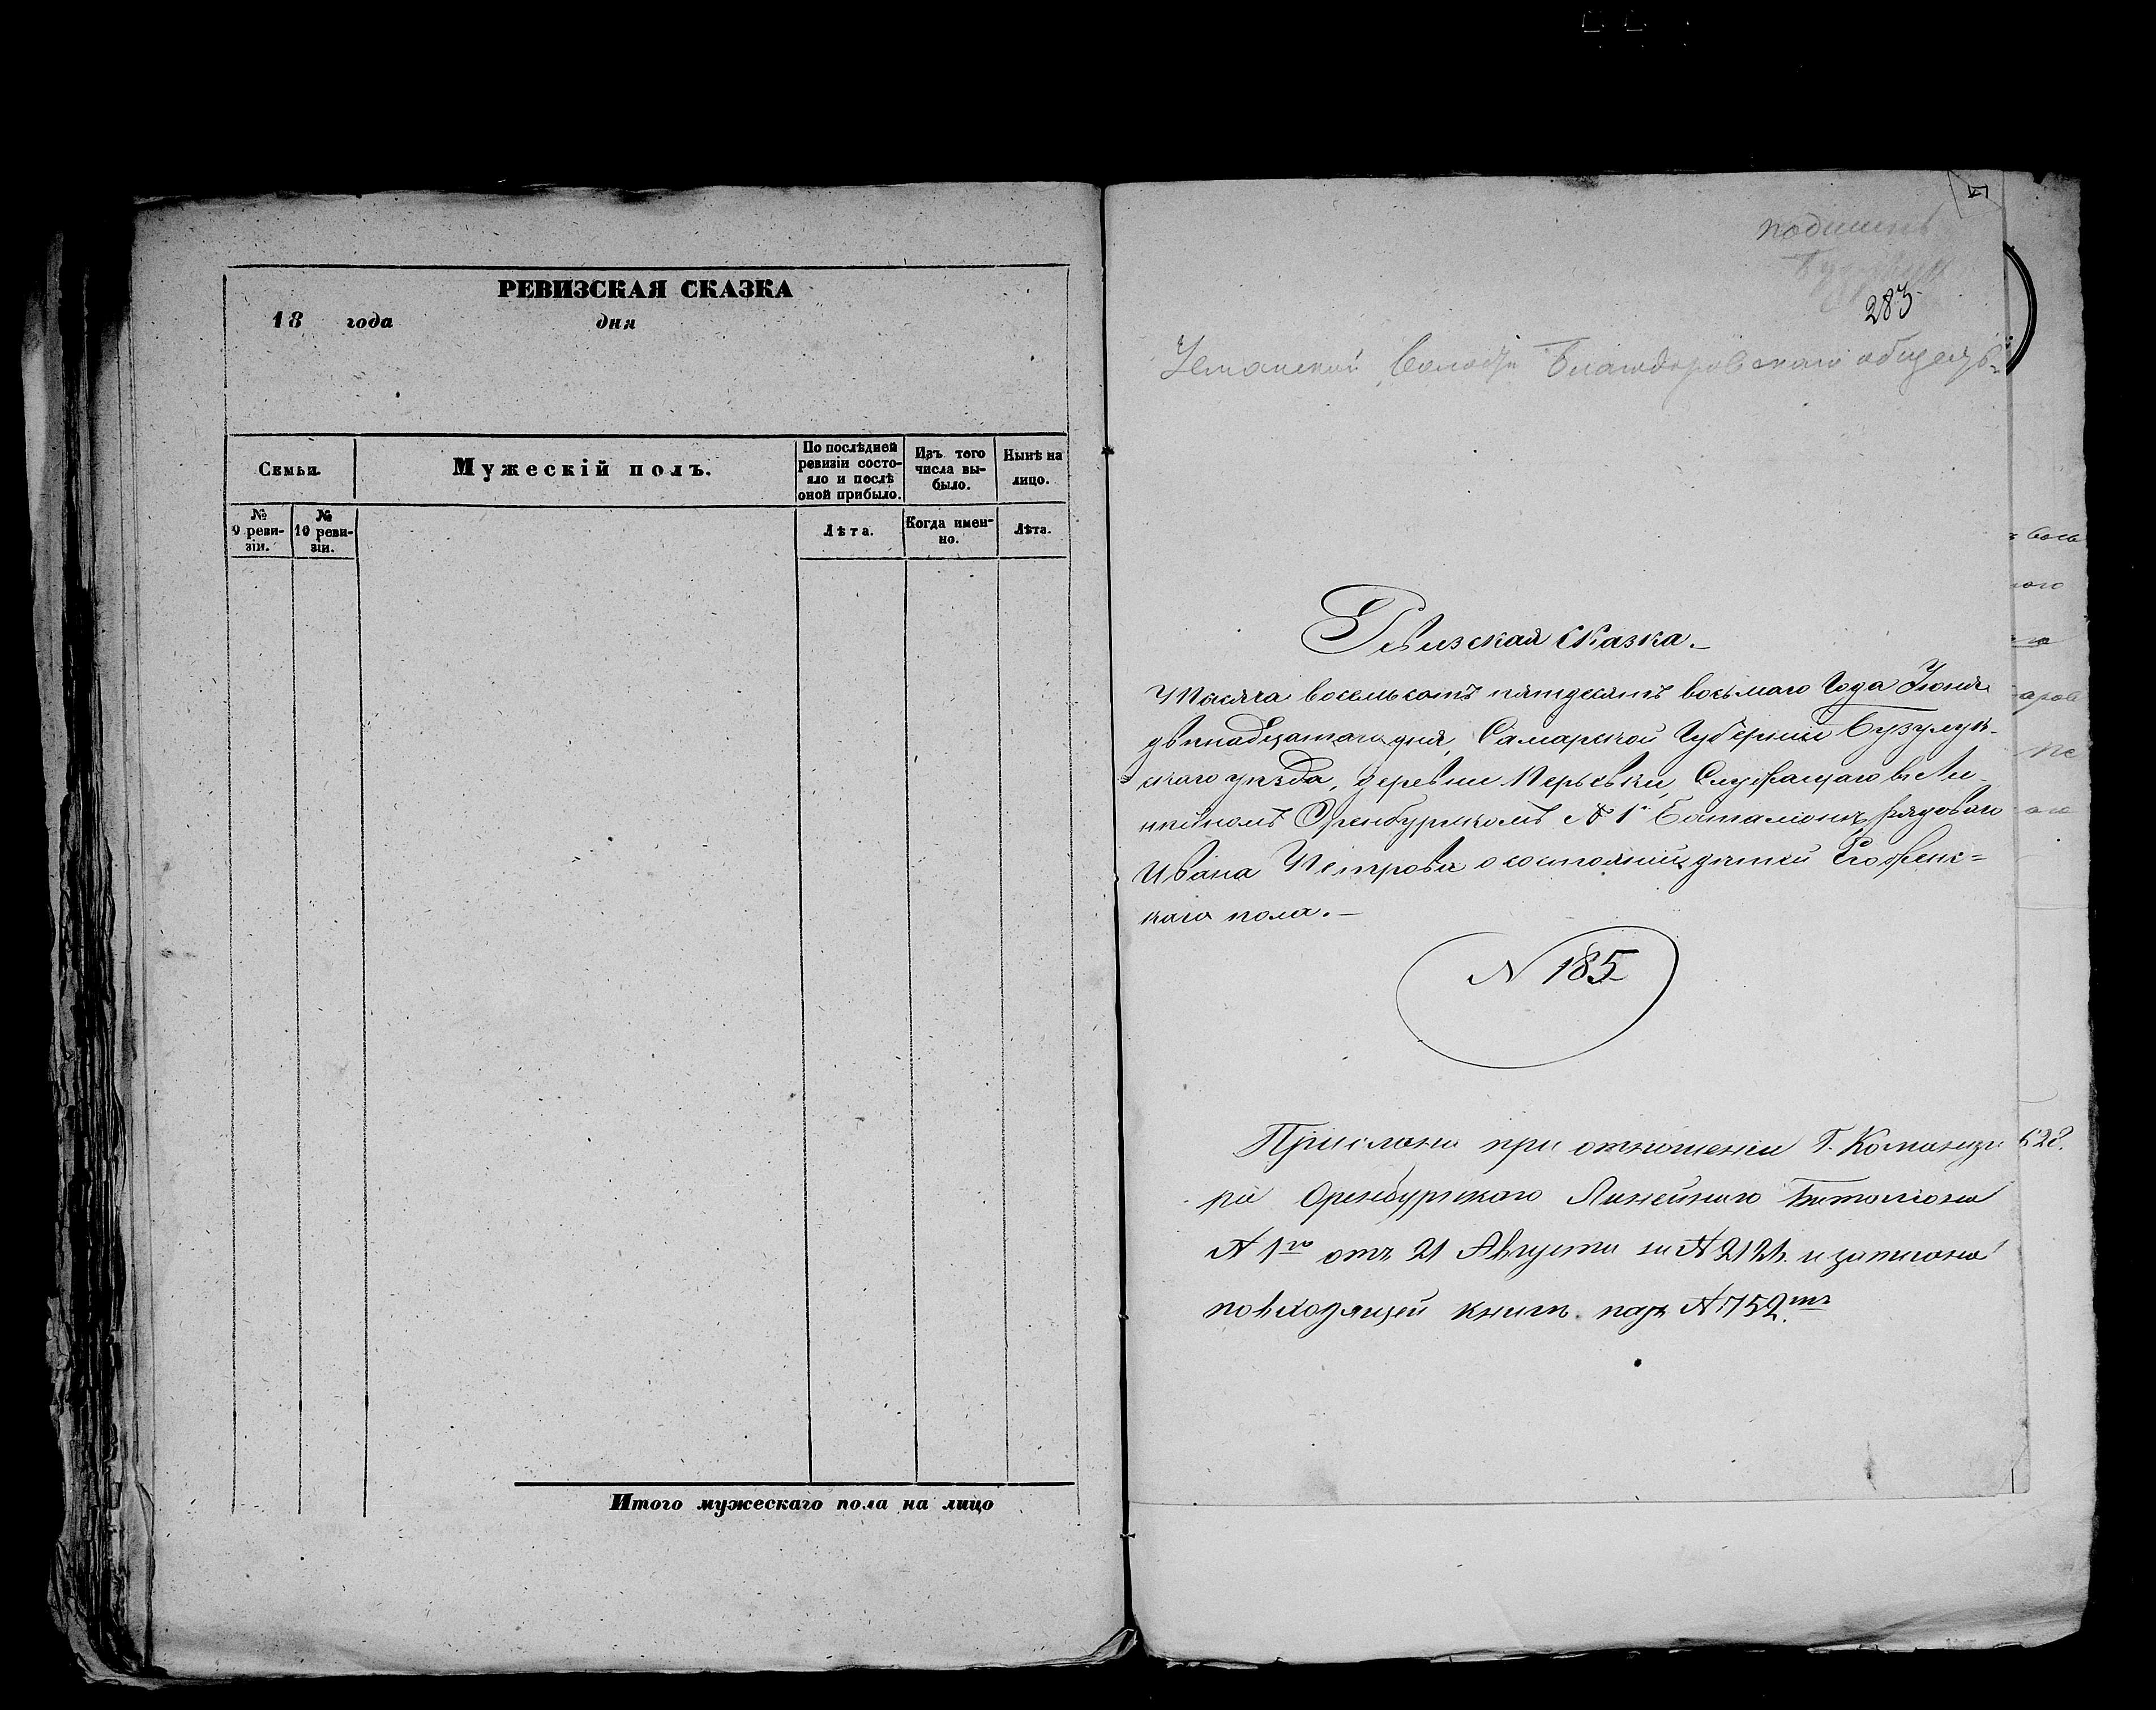 РЕВИЗСКАЯ СКАЗКА
18 года дня
Семьи.
Мужескій полъ.
По послѣдней
ревизіи состо-
яло и послѣ
оной прибыло.
Изъ того
числа вы-
было.
Нынѣ на
лицо.
№
9 реви-
зіи.
№
10 реви-
зіи.
Лѣта.
Когда имен-
но.
Лѣта.
Итого мужескаго пола на лицо
283
волости общества
Ревизская Сказка.
Тысяча восемьсотъ пятдесятъ восьмаго Года Іюня
двѣнадцатаго дня, Самарской Губерніи Бузулук-
скаго уѣзда, деревни Служащаго въ Ли-
нѣйномъ Оренбургскомъ № 1 Баталіонѣ, рядоваго
Ивана Петрова о состояніи дѣтей Его женс=
каго пола.—
N 185
Прислана при отношеніи Г. Команди
ра Оренбургскаго Линейнаго Баталіона
№ 1го отъ 21 Августа за № 2121. и записана
по входящей книгѣ подъ № 752.мъ
628.